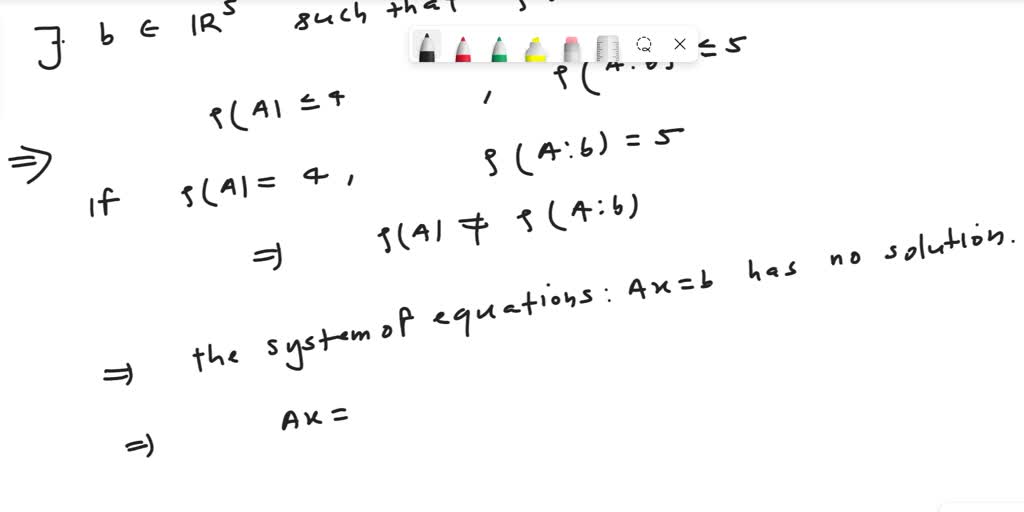 J. b ∈ IR⁵ such that
⇒ ρ(A) ≤ 4 , ρ(A:b) ≤ 5
if ρ(A) = 4, ρ(A:b) = 5
⇒ ρ(A) ≠ ρ(A:b)
⇒ the system of equations: Ax=b has no solution.
⇒ Ax =